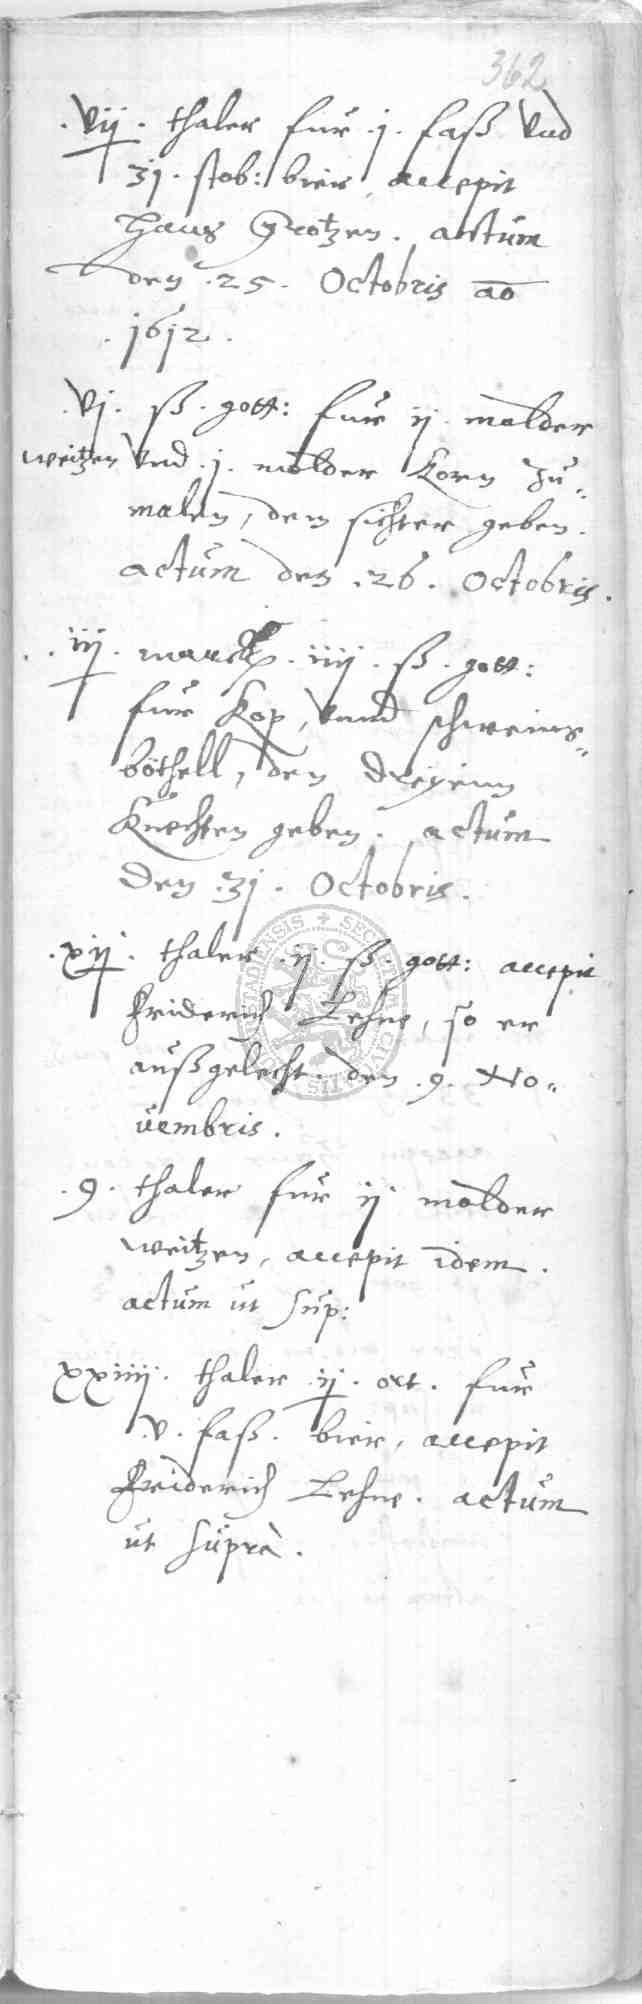 362
.vij. thaler fur .j. faß vnd
31. stob: bier, accepit
Hans Grotzen. actum
den .25. Octobris ao
.1612.
.vj. ß. gott: fur ij. malder
weitzen vnd .j. malder Korn zu
malen, dem sichter geben.
actum den .26. Octobris.
.iij. marck. iiij. ß. gott:
fur Kop, vnnd schweins
böthell, den dreyenn
Knechten geben. actum
den .31. Octobris.
.xij. thaler .ij. ß. gott: accepit
Friderich Lehne, so er
außgelecht. den .9. No
uembris.
.9. thaler fur ij malder
weitzen, accepit idem.
actum ut sup:
xxiiij. thaler .ij. ort. fur
.v. faß. bier, accepit
Friderich Lehne. actum
ut suprà.